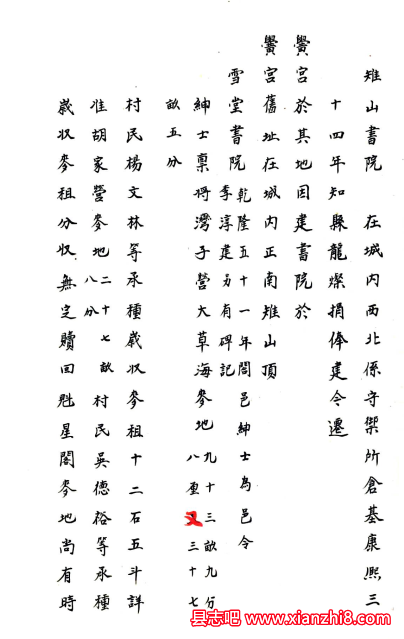 雉山書院　在城内西北係守禦所倉基康熙三
十四年知縣龍燦捐俸建今遷
黌宮於其地因建書院於
黌宮舊址在城内正南雉山頂
雪堂書院乾隆五十一年閤邑紳士為邑令
李淳建另有碑記
紳士禀将灣子營大草海麥地九十三畝九分
八厘又三十七
畝五分
村民楊文林等承種歲収麥租十二石五斗詳
准胡家營麥地二十七畝
八分村民吳德裕等承種
歲収麥租分収無定贖回魁星閣麥地尚有時
县志吧
www.xianzhi8.com